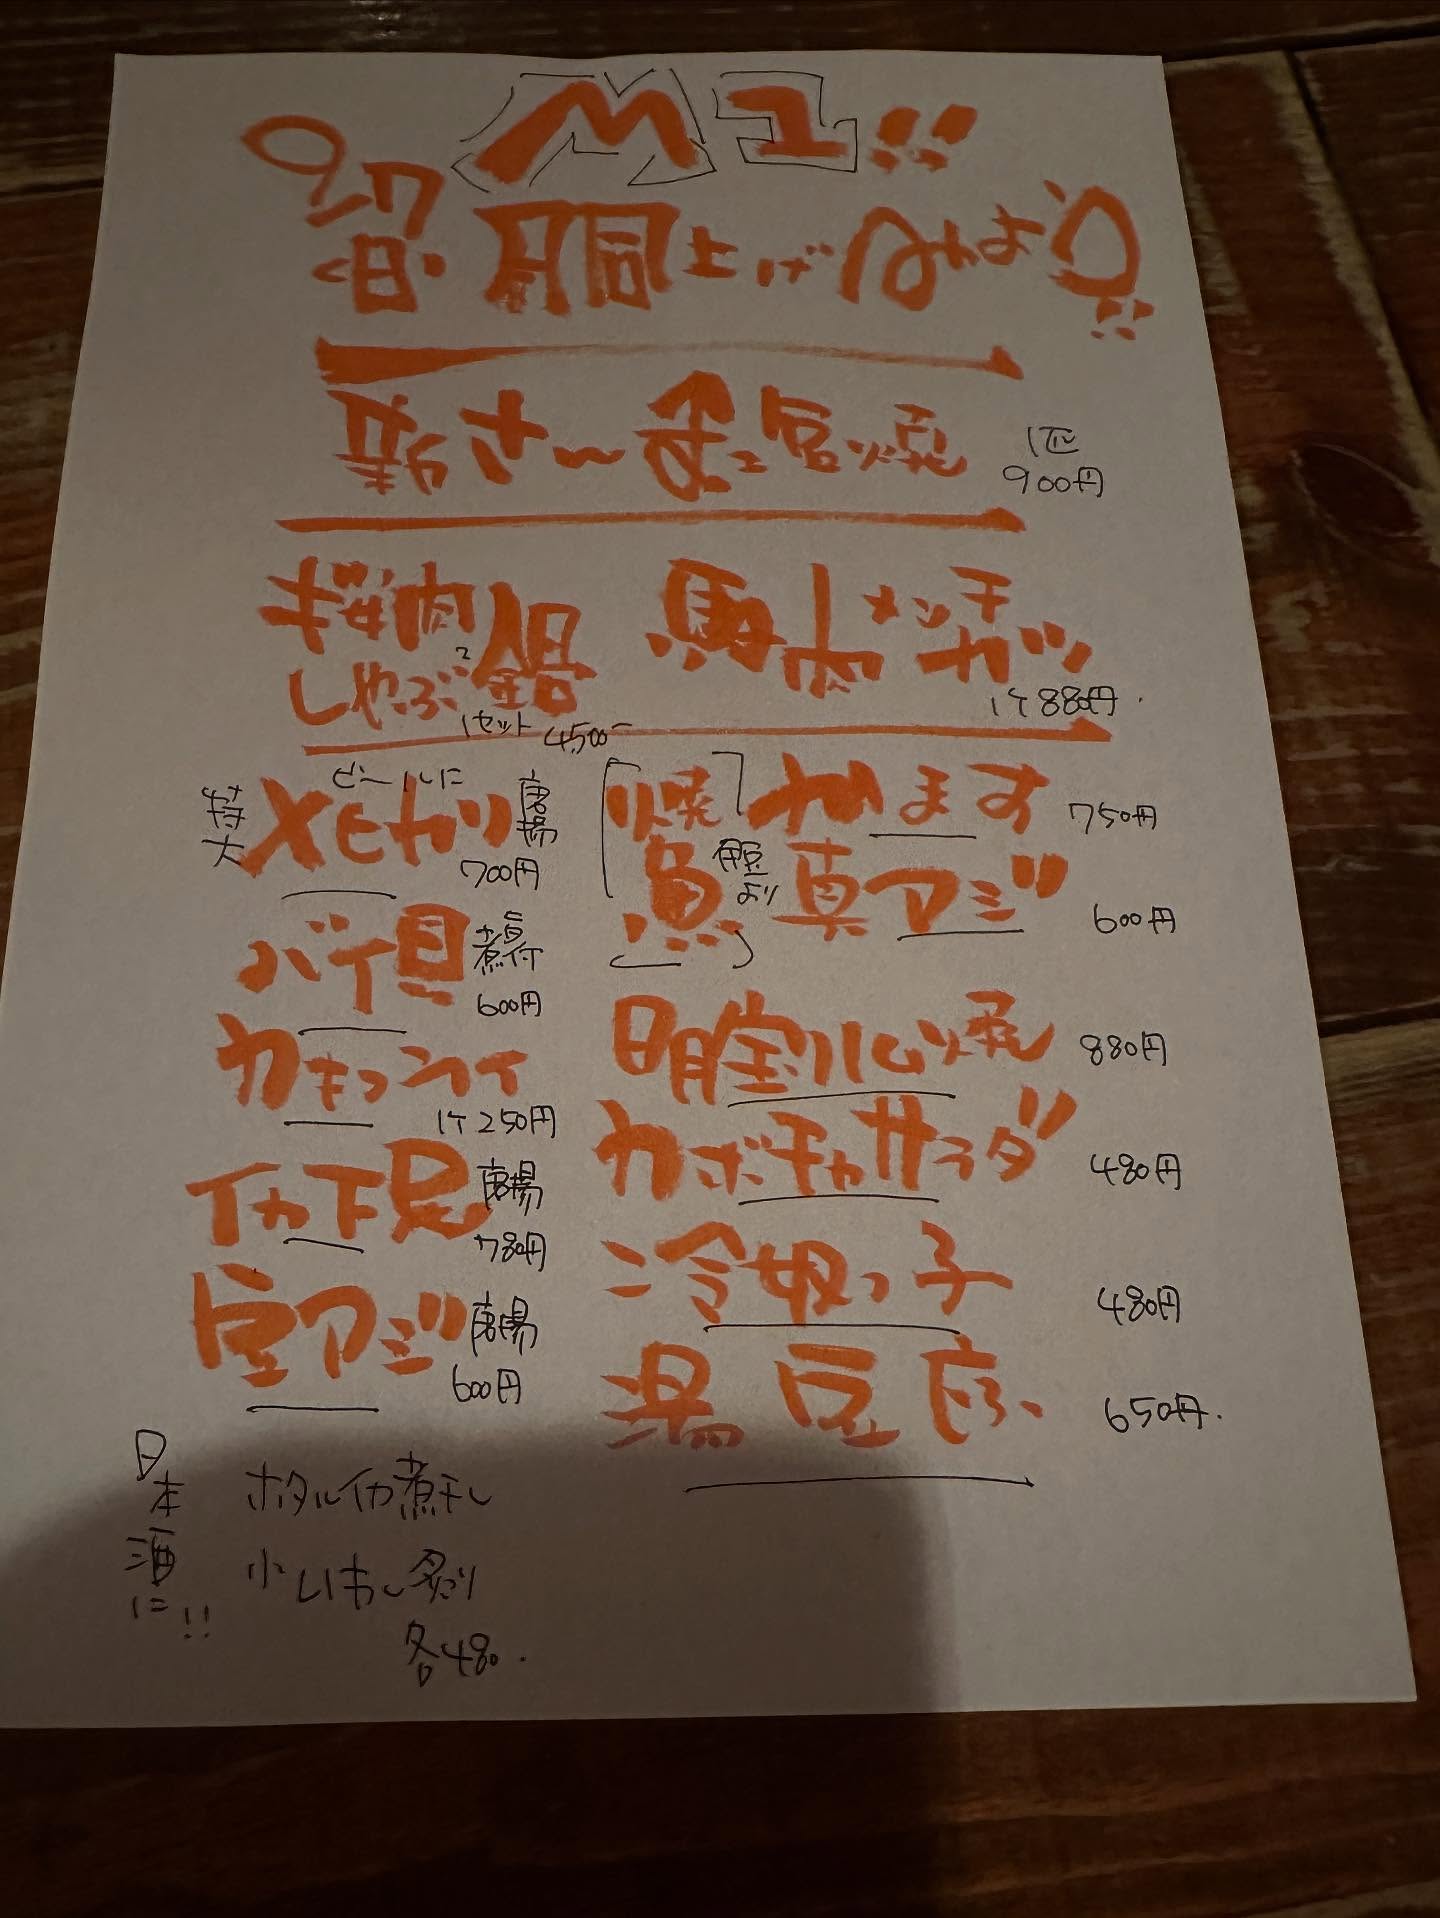 9/7
<日>
胴上げ
新さんま塩焼 1匹
900円
桜肉
しゃぶ2鍋
1セット 4500-
馬肉メンチ
カツ
1ケ880円.
特大 メヒカリ 唐揚
ビールに
700円
バイ貝 煮付
600円
カキフライ
1ケ250円
イカ下足 唐揚
780円
豆アジ 唐揚
600円
焼魚
伊豆より
かます 750円
真アジ 600円
明宝ハム焼 880円
カボチャサラダ 480円
冷奴っ子 480円
湯豆腐 650円.
日本酒に!!
ホタルイカ煮干し
小いわし炙り
各480.